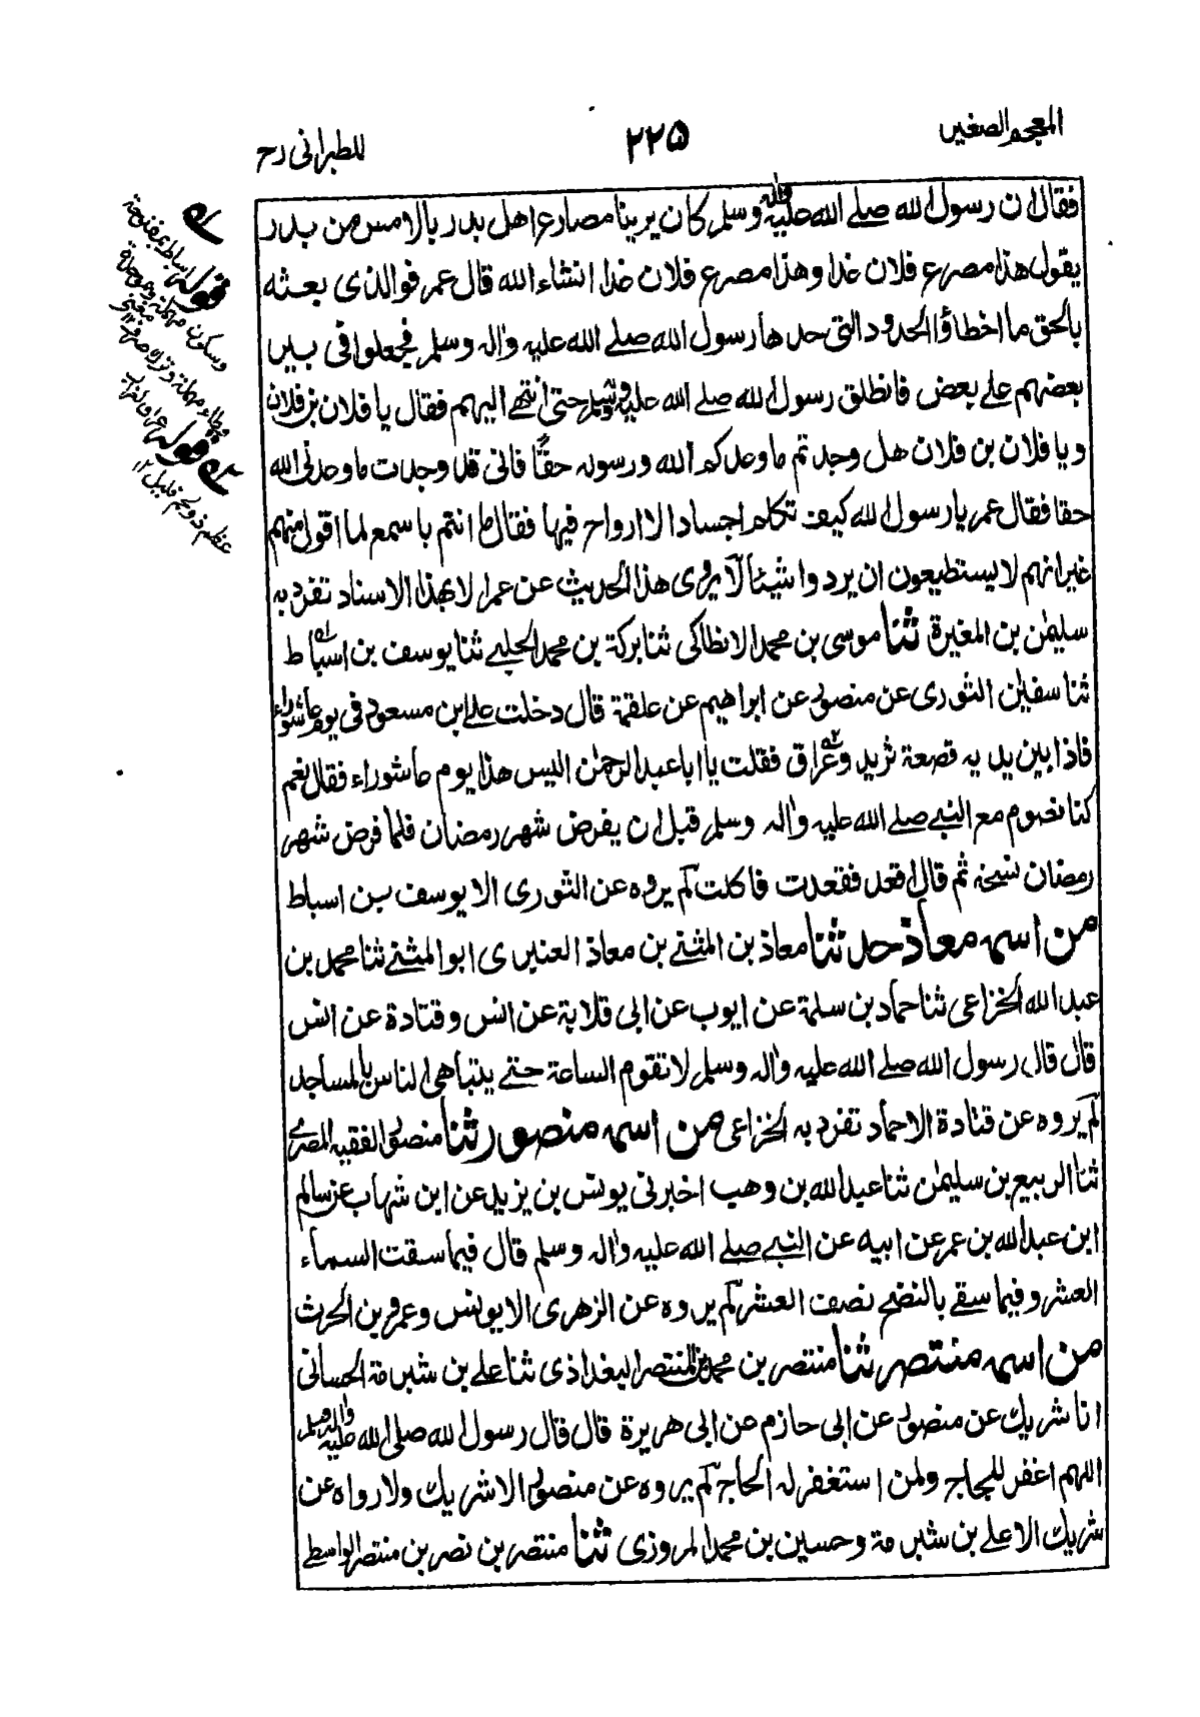 المعجم الصغير
٢٢٥
للطبرانی رح
فقال ان رسول الله صلے الله علیه واٰله وسلم کان یرینا مصارع اهل بدر بالامس من بدر
یقول هذا مصرع فلان غدا وهذا مصرع فلان غدا انشاء الله قال عمر فوالذی بعثه
بالحق ما اخطاؤا الحدود التی حدها رسول الله صلے الله علیه واٰله وسلم فجعلوا فی بیر
بعضهم علے بعض فانطلق رسول الله صلے الله علیه وسلم حتی انتهے الیهم فقال یا فلان بن فلان
ویا فلان بن فلان هل وجدتم ما وعدکم الله ورسوله حقًّا فانی قد وجدت ما وعدنی الله
حقا فقال عمر یا رسول الله کیف تکلم اجسادا لا ارواح فیها فقال ما انتم باسمع لما اقول منهم
غیر انهم لا یستطیعون ان یردوا شیئًا لا یروی هذا الحدیث عن عمر الا بهذا الاسناد تفرد به
سلیمٰن بن المغیرة ثنا موسی بن محمد الانطاکی ثنا برکة بن محمد الحلبے ثنا یوسف بن اسباط
ثنا سفیٰن الثوری عن منصور عن ابراهیم عن علقمة قال دخلت علے ابن مسعود فی یوم عاشوراء
فاذا بین یدیه قصعة ثرید وعُراق فقلت یا ابا عبد الرحمٰن الیس هذا یوم عاشوراء فقال نعم
کنا نصوم مع النبے صلے الله علیه واٰله وسلم قبل ان یفرض شهر رمضان فلما فرض شهر
رمضان نسخه ثم قال اقعد فقعدت فاکلت لم یروه عن الثوری الا یوسف بن اسباط
من اسمه معاذ حدثنا معاذ بن المثنے بن معاذ العنبری ابو المثنے ثنا محمد بن
عبد الله الخزاعی ثنا حماد بن سلمة عن ایوب عن ابی قلابة عن انس وقتادة عن انس
قال قال رسول الله صلے الله علیه واٰله وسلم لا تقوم الساعة حتے یتباهی الناس بالمساجد
لم یروه عن قتادة الا حماد تفرد به الخزاعی من اسمه منصور ثنا منصور الفقیه المصری
ثنا الربیع بن سلیمٰن ثنا عبد الله بن وهب اخبرنی یونس بن یزید عن ابن شهاب عن سالم
ابن عبد الله بن عمر عن ابیه عن النبے صلے الله علیه واٰله وسلم قال فیما سقت السماء
العشر وفیما سقے بالنضح نصف العشر لم یروه عن الزهری الا یونس وعمرو بن الحرث
من اسمه منتصر ثنا منتصر بن محمد بن المنتصر البغداذی ثنا علے بن شبرمة الحسانی
انا شریك عن منصور عن ابی حازم عن ابی هریرة قال قال رسول الله صلی الله علیه واٰله وسلم
اللهم اغفر للحاج ولمن استغفر له الحاج لم یروه عن منصور الا شریك ولا رواه عن
شریك الا علے بن شبرمة وحسین بن محمد المروزی ثنا منتصر بن نصر بن منتصر الواسطے
قوله اسباط بمفتوحة
وسکون مهملة وبموحدة
وطاء مهملة
قوله
عظم ذو لحم قلیل ١٢